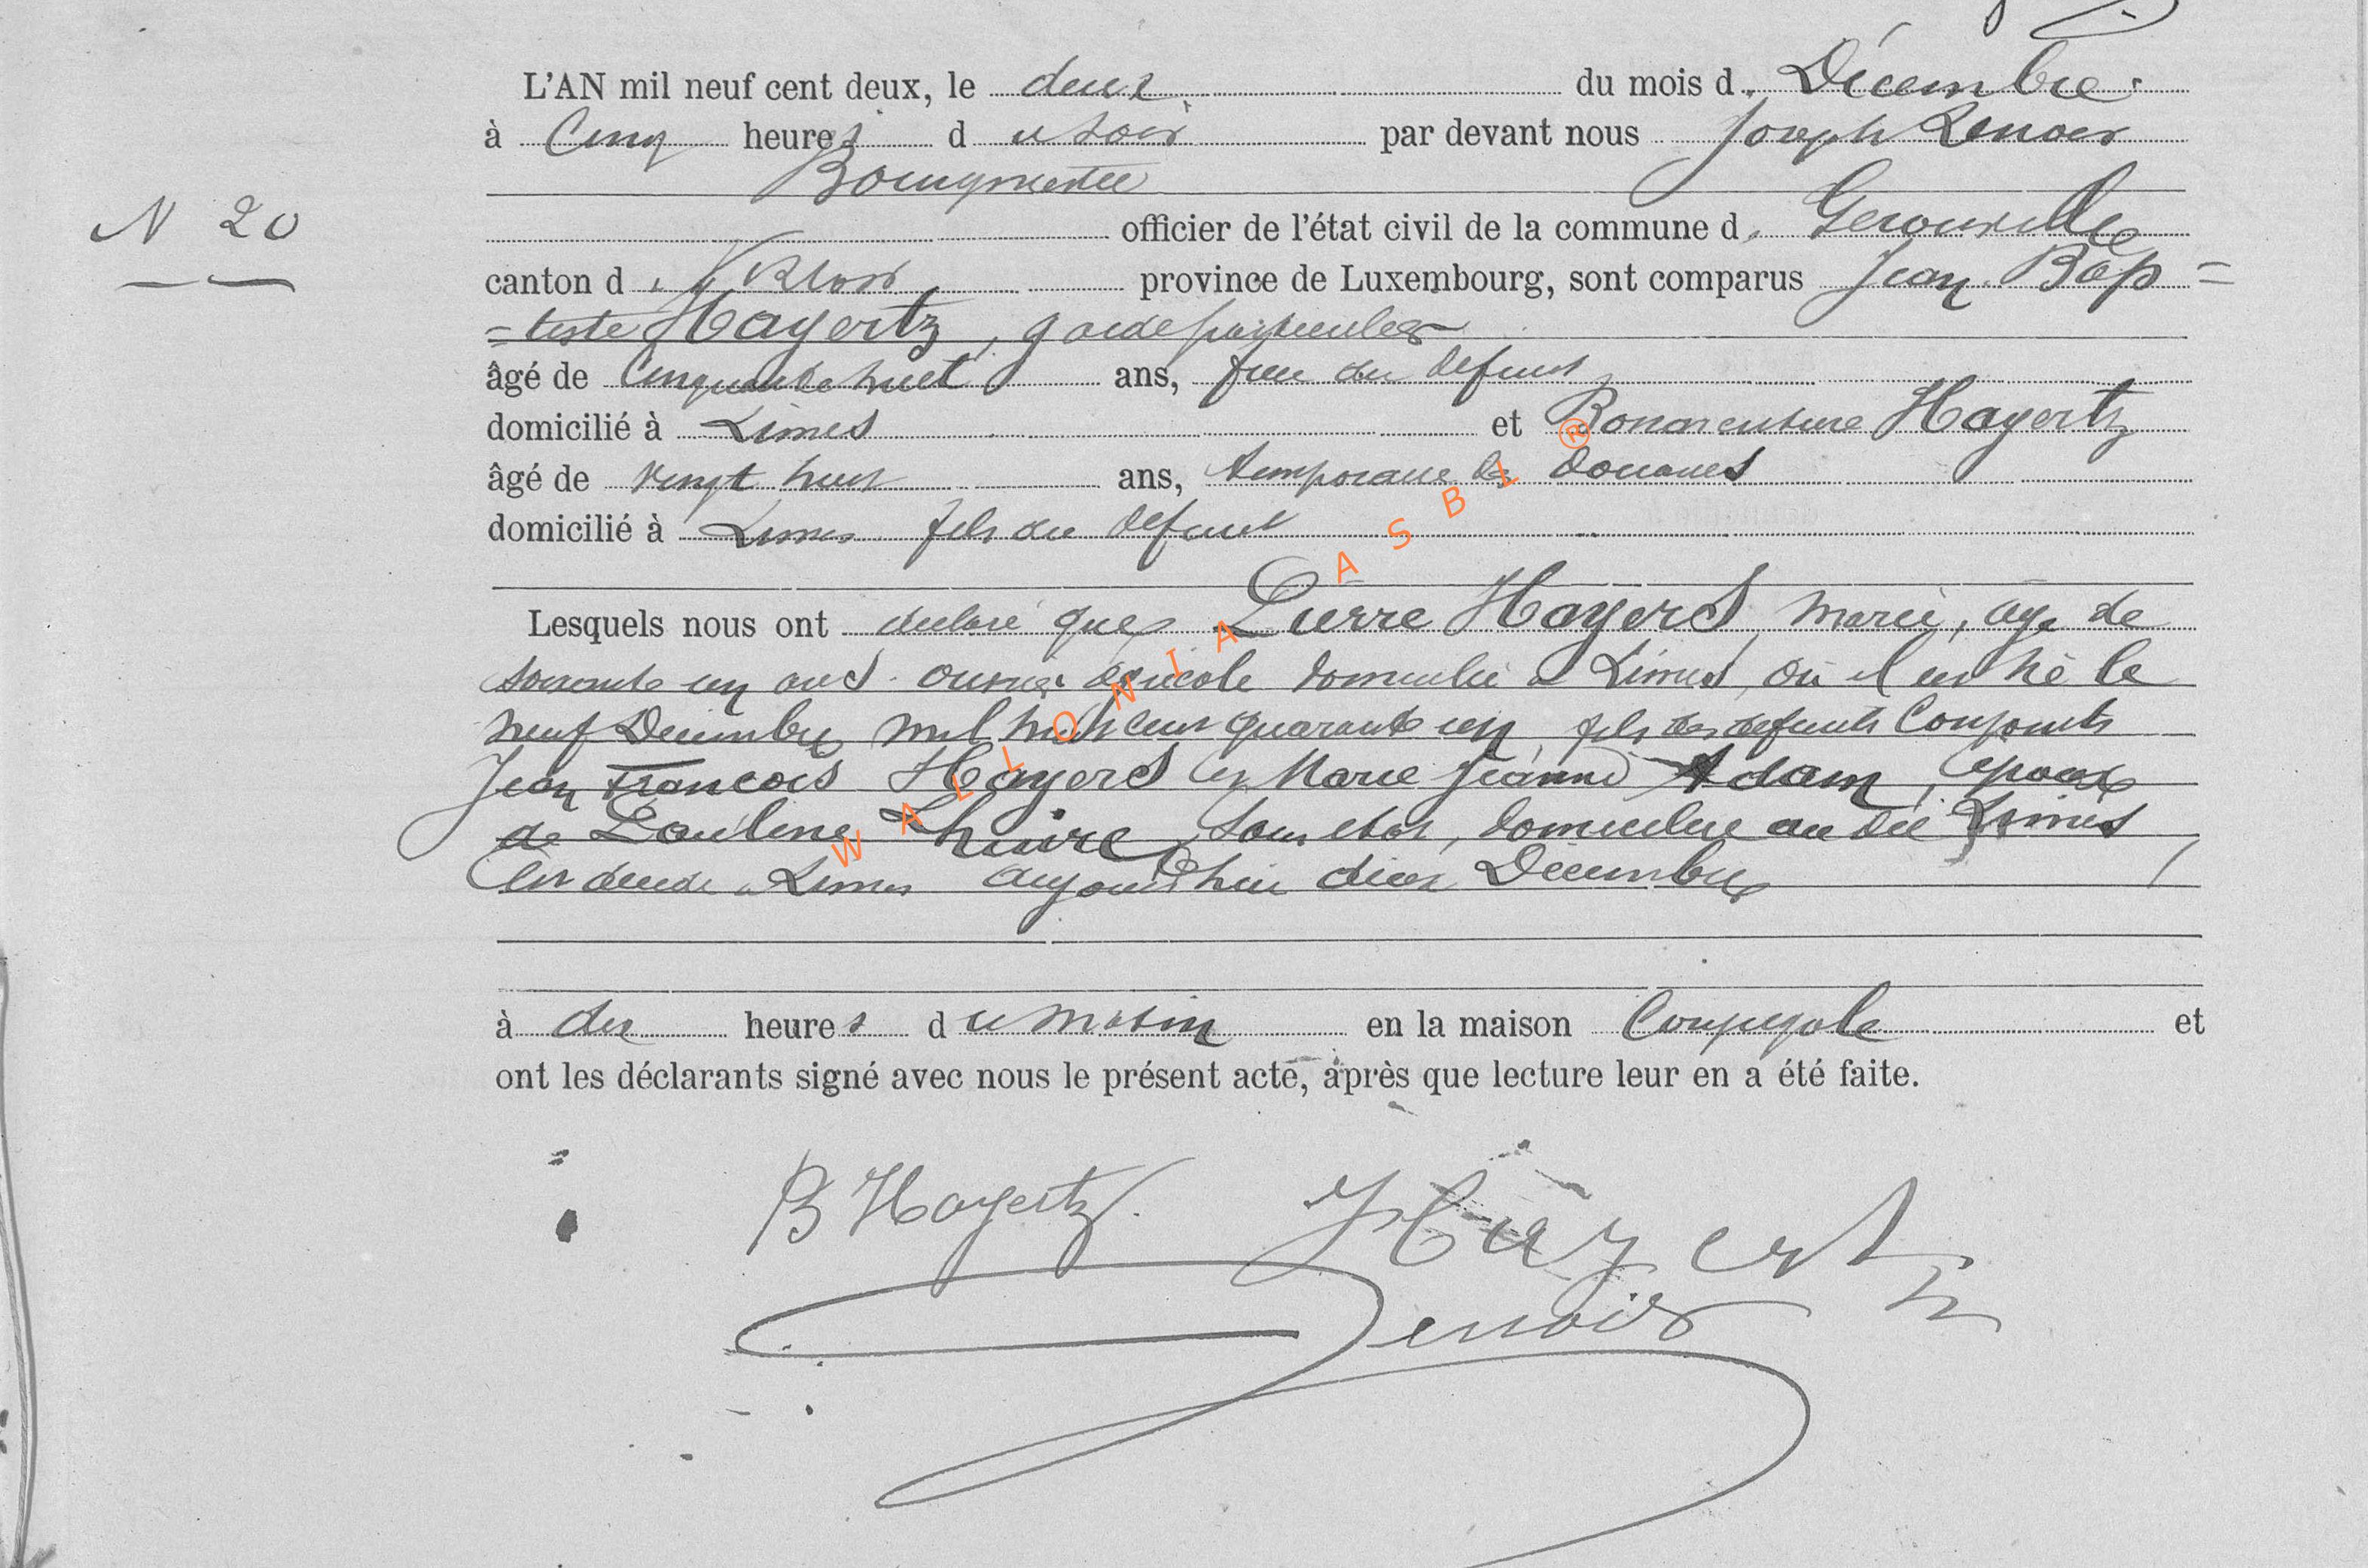 L'AN mil neuf cent deux, le deux du mois d. Décembre
à Cinq heures du soir par devant nous Joseph Lenoir
Bourgmestre
N 20
officier de l'état civil de la commune d. Gerouville
canton d Virton province de Luxembourg, sont comparus Jean Bap=
=tiste Hayertz, garde particulier
âgé de Cinquante huit ans, frere du defunt
domicilié à Limes et Bonaventure Hayertz
âgé de vingt huit ans, temporaire des douanes
domicilié à Limes fils du defunt
Lesquels nous ont declaré que Pierre Hayerts, marié, âgé de
soixante un ans ouvrier agricole domicilié à Limes, où il est né le
neuf Decembre mil huit cent quarante un, fils des defunts Conjoints
Jean François Hayerts et Marie Jeanne Adam, epoux
de Pauline Lhuire, sans etat, domiciliée au dit Limes
Est decedé à Limes aujourd'hui deux Décembre
à dix heures du matin en la maison Conjugale et
ont les déclarants signé avec nous le présent acte, après que lecture leur en a été faite.
B Hayertz. Hayertz
Lenoir
WALLONIA ASBL ®